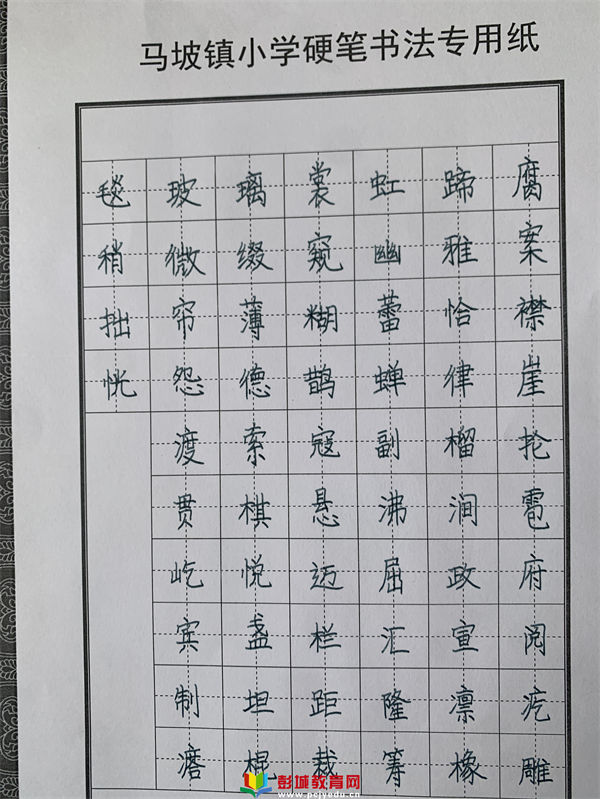 马坡镇小学硬笔书法专用纸
腐案襟崖抡雹府阅疙雕
蹄雅恰律榴涧政宣凛橡
虹幽蕾蝉副沸屈汇隆筹
裳窥糊鹊寇悬迈栏距裁
璃缀薄德索棋悦盏坦棍
玻微帘怨渡贯屹宾制
毯稍拙恍
彭城教育网